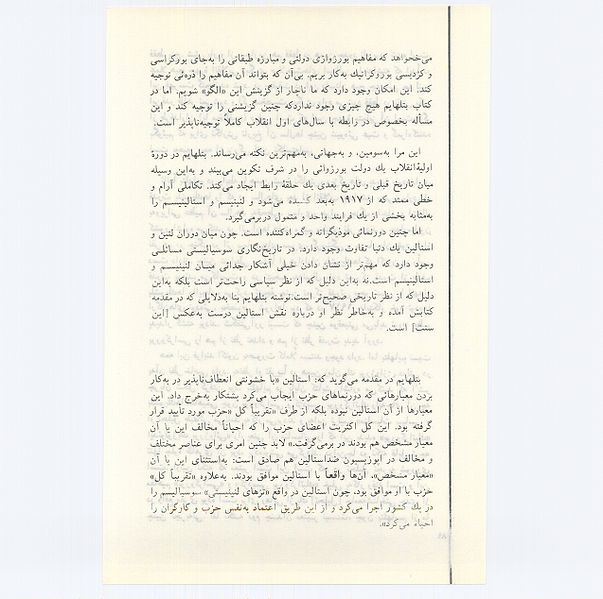 می‌خحواهد که مفاهیم بورزوازی دولتی و مبارزه طبقاتی را به‌جای بورکراسی
و کردیسی بوروکراتیک به‌کار بریم. بی‌آن که بتواند آن مفاهیم را ذره‌ئی توجیه
کند. این امکان وجود دارد که ما ناچار از گزینش این «الگو» شویم. اما در
کتاب بتلهایم هیچ چیزی وجود نداردکه چنین گزینشی را توجیه کند و این
مسأله بخصوص در رابطه با سال‌های اول انقلاب کاملاً توجیه‌ناپذیر است.
این مرا به‌سومین، و به‌جهاتی، به‌مهم‌ترین نکته می‌رساند. بتلهایم در دورۀ
اولیۀ‌انقلاب یك دولت بورژوائی را در شرف تکوین می‌بیند و به‌این وسیله
میان تاریخ قبلی و تاریخ بعدی یك حلقۀ رابط ایجاد می‌کند. تکاملی آرام و
خطی ممتد که از ۱۹۱۷ به‌بعد کشیده می‌شود و لنینیسم و استالینیسم را
به‌مثابه بخشی از یك فرایند واحد و متمول دربرمی‌گیرد.
اما چنین دورنمائی موذیگرانه و گمراه‌کننده است. چون میان دوران لنین و
استالین یك دنیا تفاوت وجود دارد. در تاریخ‌نگاری سوسیالیستی مسائلی
وجود دارد که مهم‌تر از نشان دادن خیلی آشکار جدائی میان لنینیسم و
استالینیسم است.نه به‌این دلیل که از نظر سیاسی راحت‌تر است بلکه به‌این
دلیل که از نظر تاریخی صحیح‌تر است.نوشته بتلهایم بنا به‌دلایلی که در مقدمه
کتابش آمده و به‌خاطر نظر او درباره نقش استالین درست به‌عکس [این
سنت] است.
بتلهایم در مقدمه می‌گوید که: استالین «با خشونتی انعطاف‌ناپذیر در به‌کار
بردن معیارهائی که دورنماهای حزب ایجاب می‌کرد پشتکار به‌خرج داد. این
معیارها از آن استالین نبوده بلکه از طرف «تقریباً کل «حزب مورد تأیید قرار
گرفته بود. این کل اکثریت اعضای حزب را که احیاناً مخالف این یا آن
معیار مشخص هم بودند در برمی‌گرفت.» لابد چنین امری برای عناصر مختلف
و مخالف در اپوزیسیون ضداستالین هم صادق است: به‌استثنای این یا آن
«معیار مسخص»، آن‌ها واقعاً با استالین موافق بودند. به‌علاوه «تقریباً کل»
حزب با او موافق بود، چون استالین در واقع «تزهای لنینیستی» سوسیالیسم را
در یك کشور اجرا می‌کرد و از این طریق اعتماد به‌نفس حزب و کارگران را
احیاء می‌کرد».